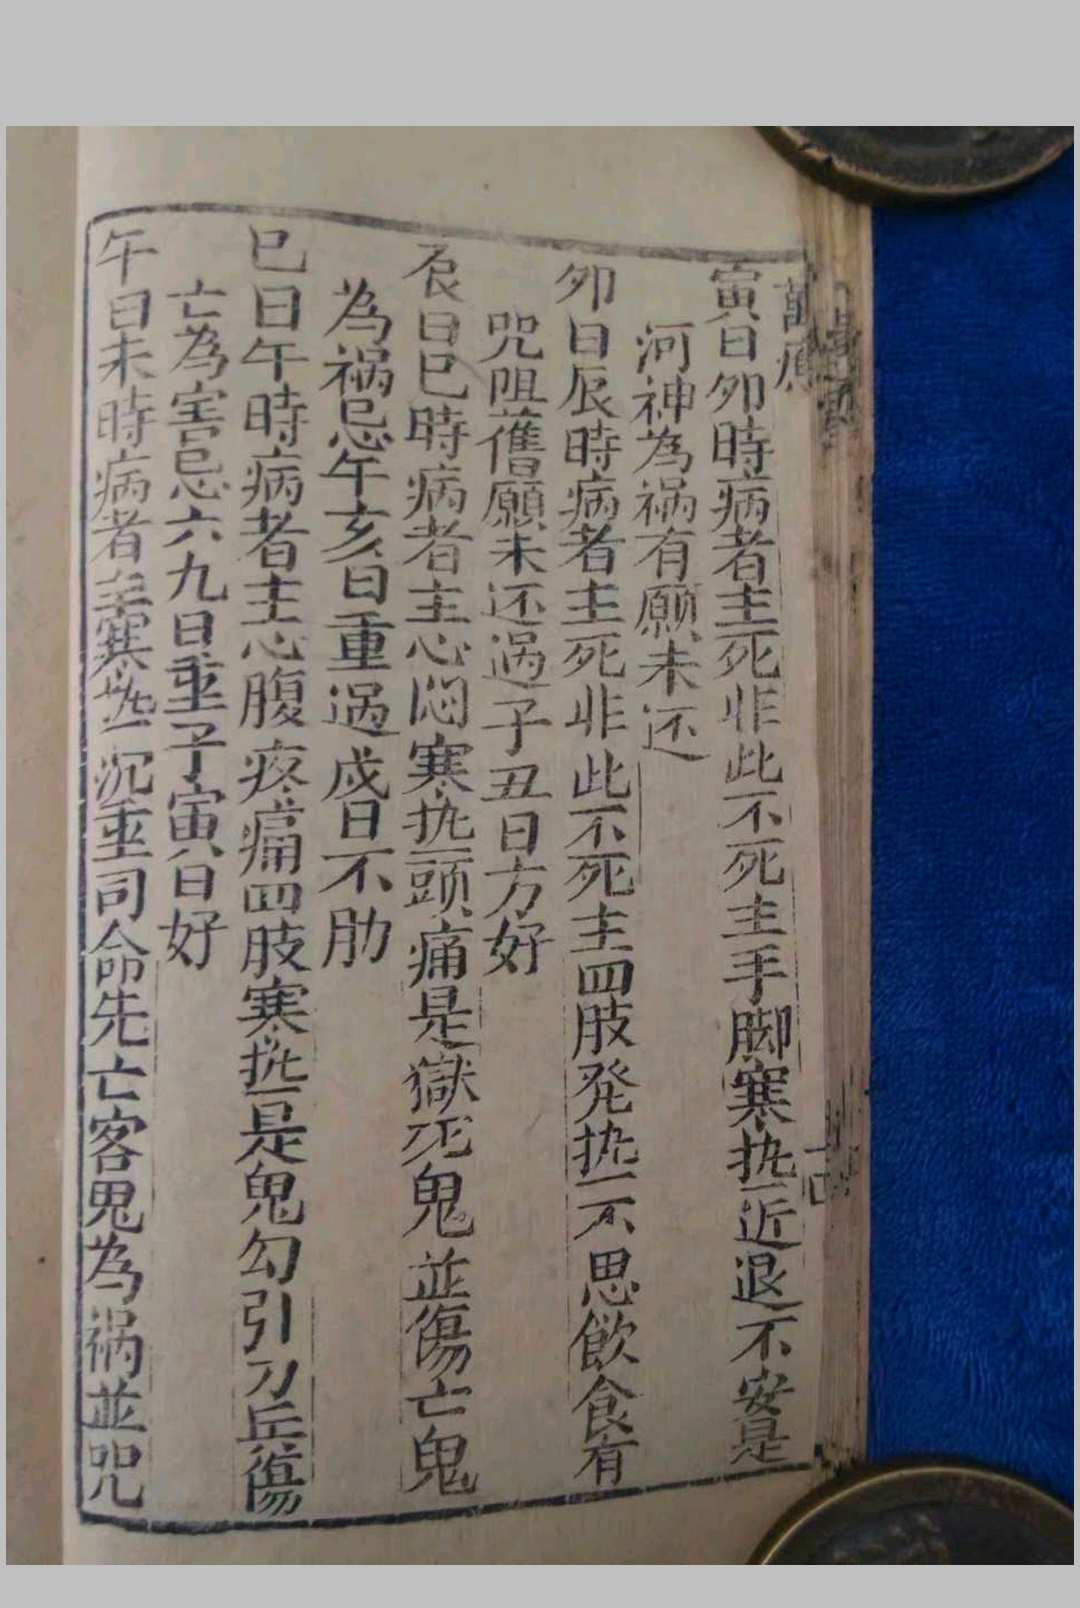 寅日夘時病者主死非此不死主手脚寒热近退不安是
河神為禍有願未还
夘日辰時病者主死非此不死主四肢発热不思飲食有
咒咀舊願未还过子丑日方好
辰日巳時病者主心悶寒热頭痛是獄死鬼並傷亡鬼
為祸忌午亥日重过戌日不肋
巳日午時病者主心腹疼痛四肢寒热是鬼勾引刀兵傷
亡為害忌六九日重子寅日好
午日未時病者主寒热沉重司命先亡客鬼為祸並咒